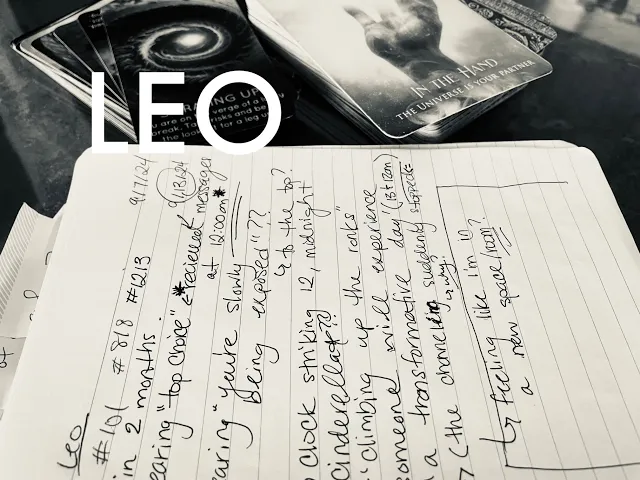 LEO
RAMPING UP
You are on the verge of a
break. Take risks and be
the lookout for a leg up
IN THE HAND
THE UNIVERSE IS YOUR PARTNER
Leo
9/7/24
#101 #818 #1213
in 2 months.
9/13/24
earing "top choice" * recieved messages
at 12:00am*
earing "you're slowly
being exposed"??
↳ to the top?
clock striking 12, midnight
cinderella??
"climbing up the ranks"
someone will experience
a transformative day" (13th 12am)
(the channeling suddenly stopped
↳ why?
↳ feeling like I'm in
a new space/room?